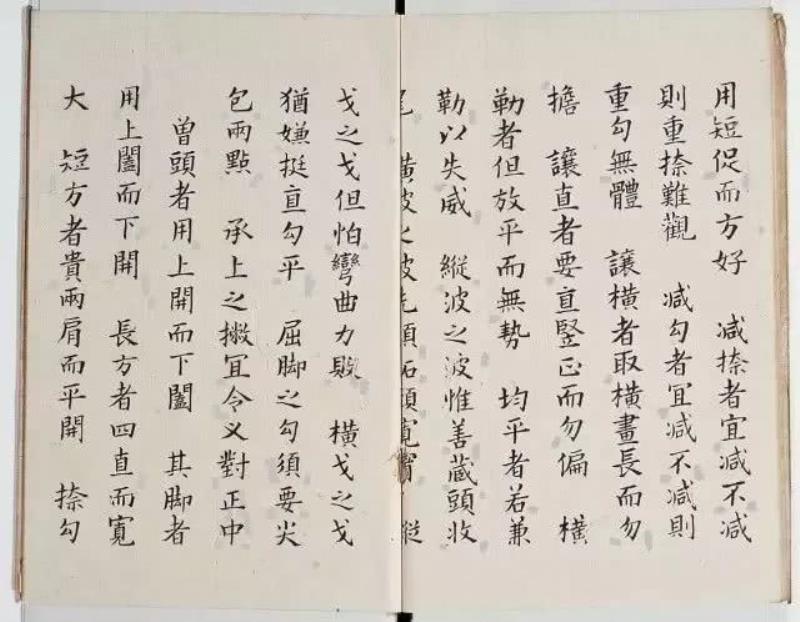 用短促而方好 減捺者宜減不減
則重捺難觀 減勾者冝減不減則
重勾無體 讓橫者取橫畫長而勿
擔 讓直者要直竪正而勿偏 橫
勒者但放平而無勢 均平者若兼
勒以失威 縱波之波惟善藏頭收
尾 橫波之波先須拓頸寬 縱
戈之戈但怕彎曲力敗 橫戈之戈
猶嫌挺直勾平 屈脚之勾須要尖
包兩點 承上之撇冝令乂對正中
曾頭者用上開而下闔 其脚者
用上闔而下開 長方者四直而寬
大 短方者貴兩肩而平開 捺勾